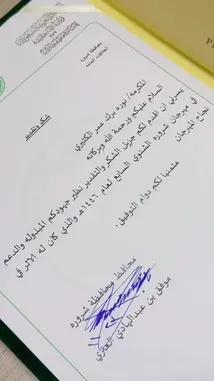 محافظة شرورة
العلاقات العامة
شكر وتقدير
المكرمه/ نوره برك عمر الكثيري
السلام عليكم ورحمة الله وبركاته
يسرني ان اقدم لكم جزيل الشكر والتقدير نظير جهودكم المبذوله والدعم
في مهرجان شروره الشتوي السابع لعام ١٤٤٦هـ والذي كان له الاثر في
نجاح المهرجان
متمنيا لكم دوام التوفيق .
محافظ محافظة شروره
موفق بن عبدالهادي العنزي